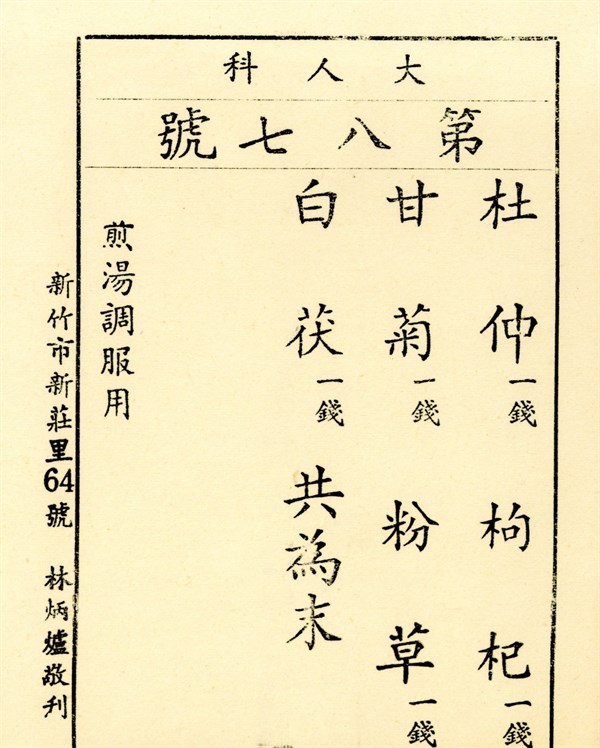 大人科
第八七號
杜仲一錢 枸杞一錢
甘菊一錢 粉草一錢
白茯一錢 共為末
煎湯調服用
新竹市新莊里64號 林炳爐敬刊